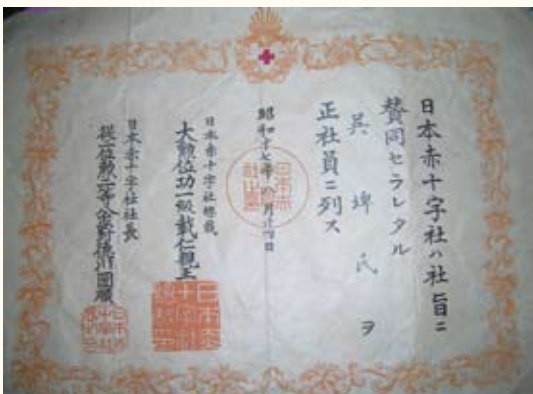 日本赤十字社ハ社旨ニ
賛同セラレタル
吳埤氏ヲ
正社員ニ列ス
昭和十七年八月廿四日
日本赤十字社總裁
大勲位功一級載仁親王
日本赤十字社社長
從二位勲一等公爵德川圀順